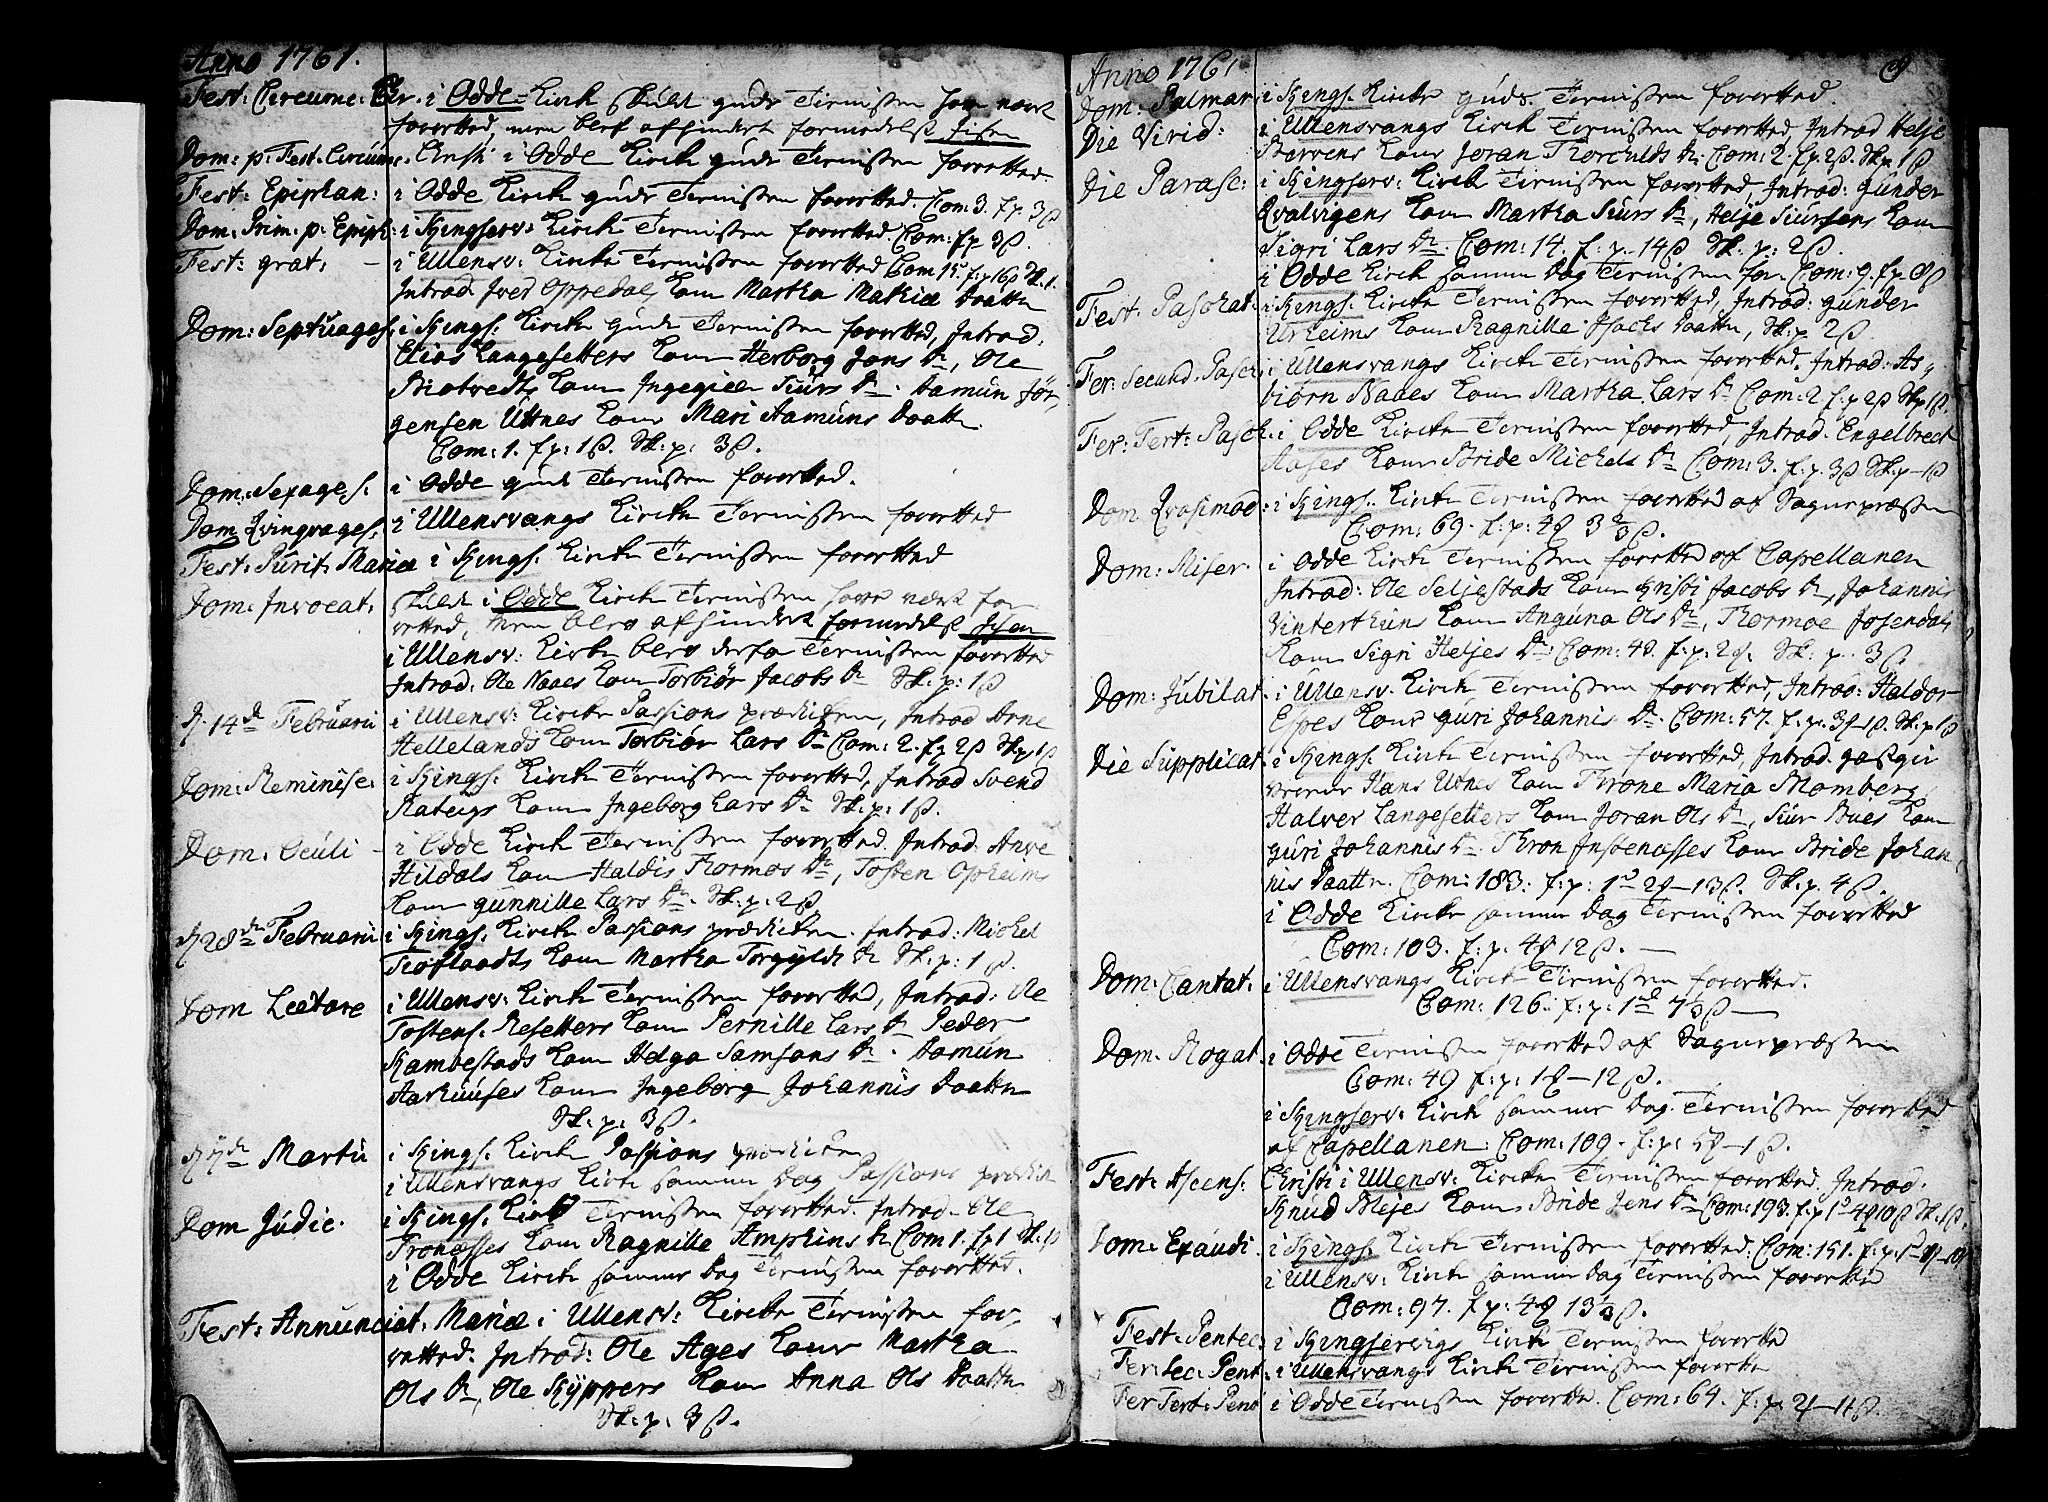 Anno 1761.
Fest: Circumc: Chr. i Odde-Kirck skulde guds Tienisten have vært
forretted, men blef afhindret formedelst Jisen
Dom: p: Fest. Circumc. Christi i Odde Kirck guds Tienisten forretted.
Fest: Epiphan: i Odde Kirck guds Tienisten forretted. Com: 3. f.p. 3ß
Dom: Prim: p: Epiph: i Kingserv: Kirck Tienisten forretted. Com: f.p 3ß.
Fest: grat: – i Ullensv: Kircke Tienisten forretted Com 15. f:p 16ß Sk. 1.
Introd. Iver Oppedals Kone Martha Mathiæ Daatter
Dom: Septuages: i Kings: Kircke guds Tienisten forretted, Introd.
Elias Langesetters Kone Herborg Jons Dr, Ole
Bratvedts Kone Ingegier Siurs Dr. Aamun Jør,
gensen Uttnes Kone Mari Aamuns Daatter.
Com: 1. f.p: 1ß. Sk: p: 3ß.
Dom: Sexages. i Odde guds Tienisten forretted.
Dom Qvinqvages. i Ullensvangs Kircke Tienisten forretted
Fest: Purit: Mariæ i Kings. Kirck Tienisten forretted
Dom: Invocat. skulde i Odde Kirck Tienisten have vært for
retted, men blev afhindret formedelst Jisen
i Ullensv: Kirck blev derfor Tienisten forretted
Introd: Ole Naaes Kone Torbiør Jacobs Dr Sk: p: 1ß
d. 14de Februarii i Ullensv: Kircke Passions prædicken, Introd Arne
Hellelands Kone Torbiør Lars Dr Com: 2. f.p 2ß Sk.p 1ß
Dom: Reminisc: i Kings. Kirck Tienisten forretted, Introd Svend
Kone Ingeborg Lars Dr Sk: p: 1ß.
Dom: Oculi – i Odde Kirck Tienisten forretted. Introd: Arne
Hildals Kone Haldis Thormos Dr, Tosten Opheims
Kone gunnille Lars Dr. Sk: p: 2ß
d 28de Februarii i Kings. Kirck Passions prædicken. Introd: Michel
Kone Martha Torgylds Dr Sk: p: 1ß.
Dom Lætare i Ullensv: Kirck Tienisten forretted, Introd: Ole
Tostens. Resetters Kone Pernille Lars Dr Peder
Kambestads Kone Helga Samsons Dr. Aamun
Aarhuuses Kone Ingeborg Johannis Daatter
Sk: p: 3ß.
d 7de Martii i Kings. Kirck Passions prædicken
i Ullensvangs Kirck samme Dag Passions prædick
Dom Judic. i Kings. Kirck Tienisten forretted. Introd. Ole
Tronæsses Kone Ragnille Amphins Dr Com 1. f.p 1 Sk. 1ß
i Odde Kirck samme Dag Tienisten forretted.
Fest: Annunciat. Mariæ i Ullensv: Kircke Tienisten for,
retted. Introd: Ole Ages Kone Martha
Ols Dr, Ole Kyppers Kone Anna Ols Daatter
Sk: p: 3ß.
Anno 1761 9
Dom: Palmar: i Kings. Kircke guds. Tienisten forretted.
Die Virid: i Ullensvangs Kirck Tienisten forretted, Introd Helje
Kone Joran Thorchilds Dr Com: 2. f.p 2ß. Sk.p 1ß
Die Parasc: i Kingserv: Kirck Tienisten forretted, Introd: gunder
Qvalvigens Kone Martha Siurs Dr, Helje Siursens Kone
Sigri Lars Dr. Com: 14. f: p. 14ß Sk. p: 2ß.
i Odde Kirck samme Dag Tienisten for. Com: 9. f.p 9ß
Fest: Paschat: i Kings. Kirck Tienisten forretted, Introd: gunder
Urheims Kone Ragnille Isachs Daatter, Sk: p 2ß.
Fer: Secund. Pasch. i Ullensvangs Kirck Tienisten forretted. Introd: As,
biørn Naaes Kone Martha Lars Dr Com: 2. f.p 2ß Sk.p 1ß.
Fer: Tert: Pasch. i Odde Kircke Tienisten forretted, Introd. Engelbrect
Aases Kone Bride Michels Dr Com: 3. f.p. 3ß Sk:p – 1ß
Dom Qvasimod: i Kings. Kirck Tienisten forretted af Sognepræsten
Com: 69. f: p: 4ß 3⅔ß.
Dom: Miser. i Odde Kirck Tienisten forretted af Capellanen
Introd: Ole Seljestads Kone Cristi Jacobs Dr, Johannis
Vinterthuns Kone Anguna Ols Dr, Thormoe Josendals
Kone Sigri Heljes Dr. Com: 48. f.p: 2ß. Sk: p. 3ß
Dom: Jubilat. i Ullensv. Kirck Tienisten forretted, Introd: Haldor
Espes Kone guri Johannis Dr. Com: 57. f.p. Sk: p 1ß
Die Supplicat. i Kings. Kirck Tienisten forretted, Introd. gæstgi
verer Hans Utnes Kone Throne Maria Stomberg,
Halver Langesetters Kone Joran Ols Dr, Siur Bues Kone
guri Johannis Dr. Thron Instenæsses Kone Bride Johan,
nis Daatter. Com: 183. f: p: 1d 2ß–13ß. Sk. p. 4ß.
i Odde Kirck samme Dag Tienisten forretted
Com: 103. f: p. 4ß 12ß.
Dom: Cantat. i Ullensvangs Kirck Tienisten forretted.
Com: 126. f: p: 1d 7⅓ß
Dom. Rogat. i Odde Tienisten forretted af Sognepræsten
Com: 49 f: p: 1ß – 12ß.
i Kingserv: Kirck samme Dag Tienisten forretted
af Capellanen: Com: 109. f: p: 5ß – 1ß.
Fest: Ascens: Christi i Ullensv: Kircke Tienisten forretted. Introd.
Knud Bleies Kone Bride Jens Dr Com: 193. f.p 1d 4ß10ß Sk. 1ß.
Dom: Exaudi. i Kings. Kirck Tienisten forretted. Com: 151. f.p:
i Ullensv: Kirck samme Dag Tienisten forretted
Com: 97. f.p: 4ß 13⅓ß.
Fest: Pentec: i Kingservigs Kirck Tienisten forretted
Fer: sec: Pent: i Ullensvangs Kirck Tienisten forretted
Fer Tert: Pent i Odde Tienisten forretted. Com: 64. f. p. 2ß–11ß.